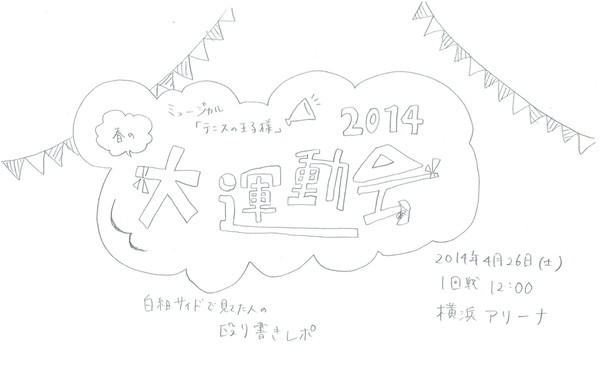 春の
ミュージカル
「テニスの王子様」
2014
大運動会
2014年4月26日(土)
1回戦 12:00
横浜アリーナ
白組サイドで見てた人の
殴り書きレポ